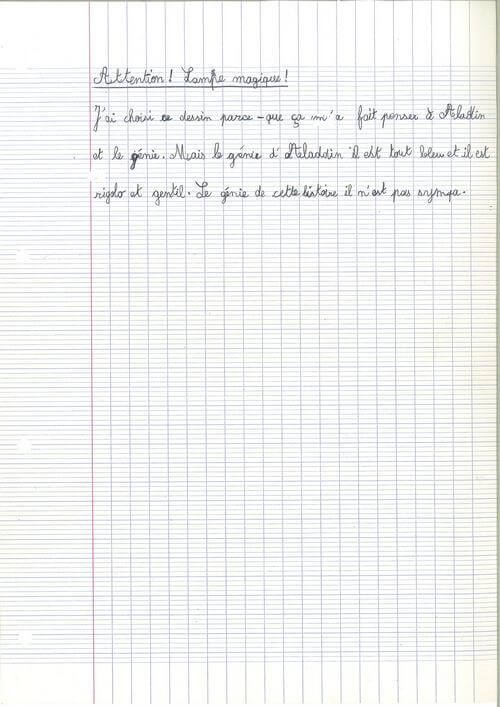 Attention ! Lampe magique !
J'ai choisi ce dessin parce-que ça m'a fait penser à Aladin
et le génie. Mais le génie d'Aladdin il est tout bleu et il est
rigolo et gentil. Le génie de cette histoire il n'est pas sympa.